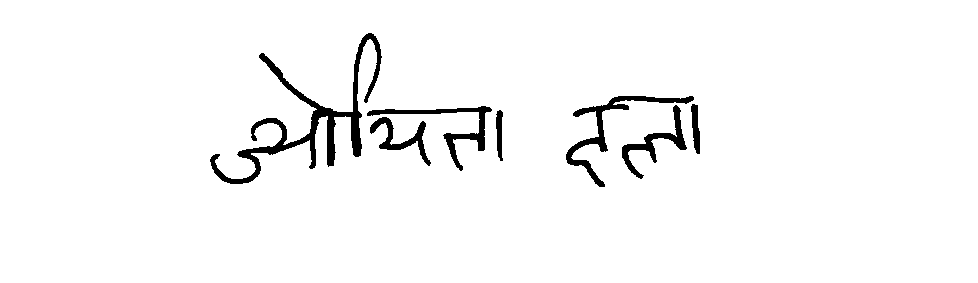 ओयिता दत्ता